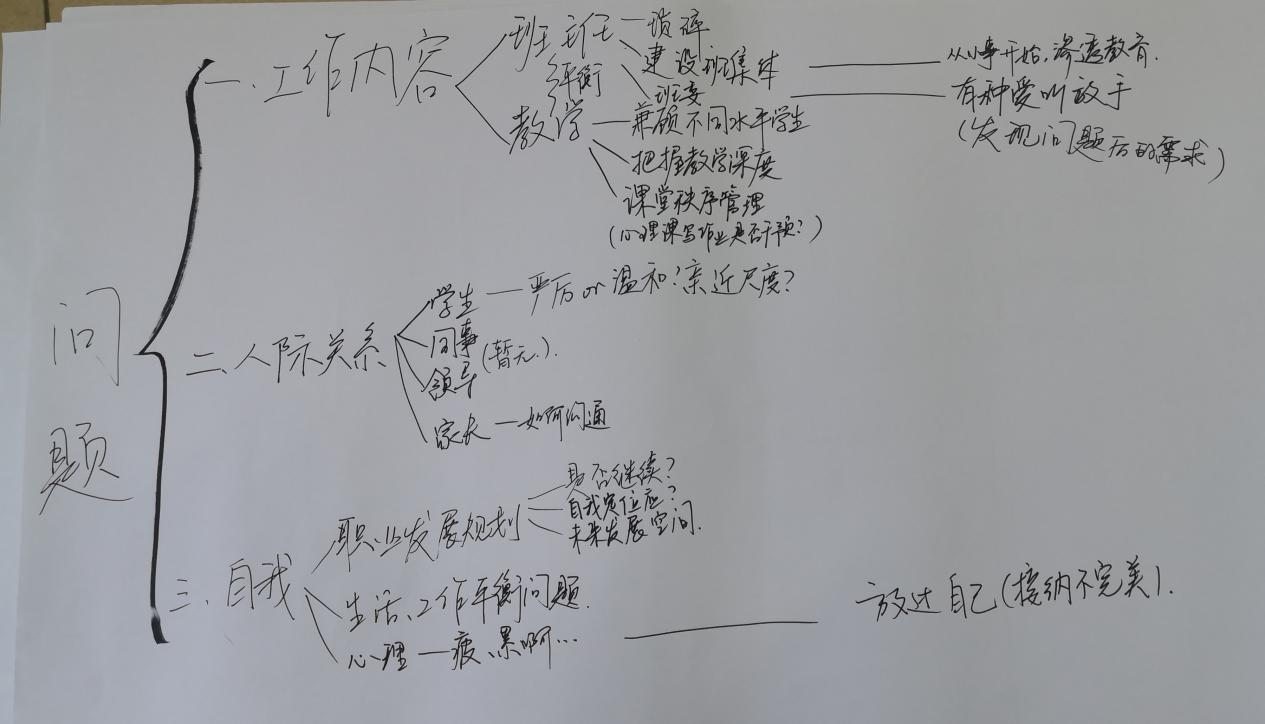 问题
一、工作内容
班主任
琐碎
建设班集体
班委
从小事开始,渗透教育.
有种爱叫放手
(发现问题后的需求)
平衡
教学
兼顾不同水平学生
把握教学深度
课堂秩序管理
(心理课写作业是否干预?)
二、人际关系
学生
严厉or温和?亲近尺度?
同事
领导
(暂无.).
家长
如何沟通
三、自我
职业发展规划
是否继续?
自我定位应?
未来发展空间.
生活、工作平衡问题.
心理
疲、累啊…
放过自己(接纳不完美).